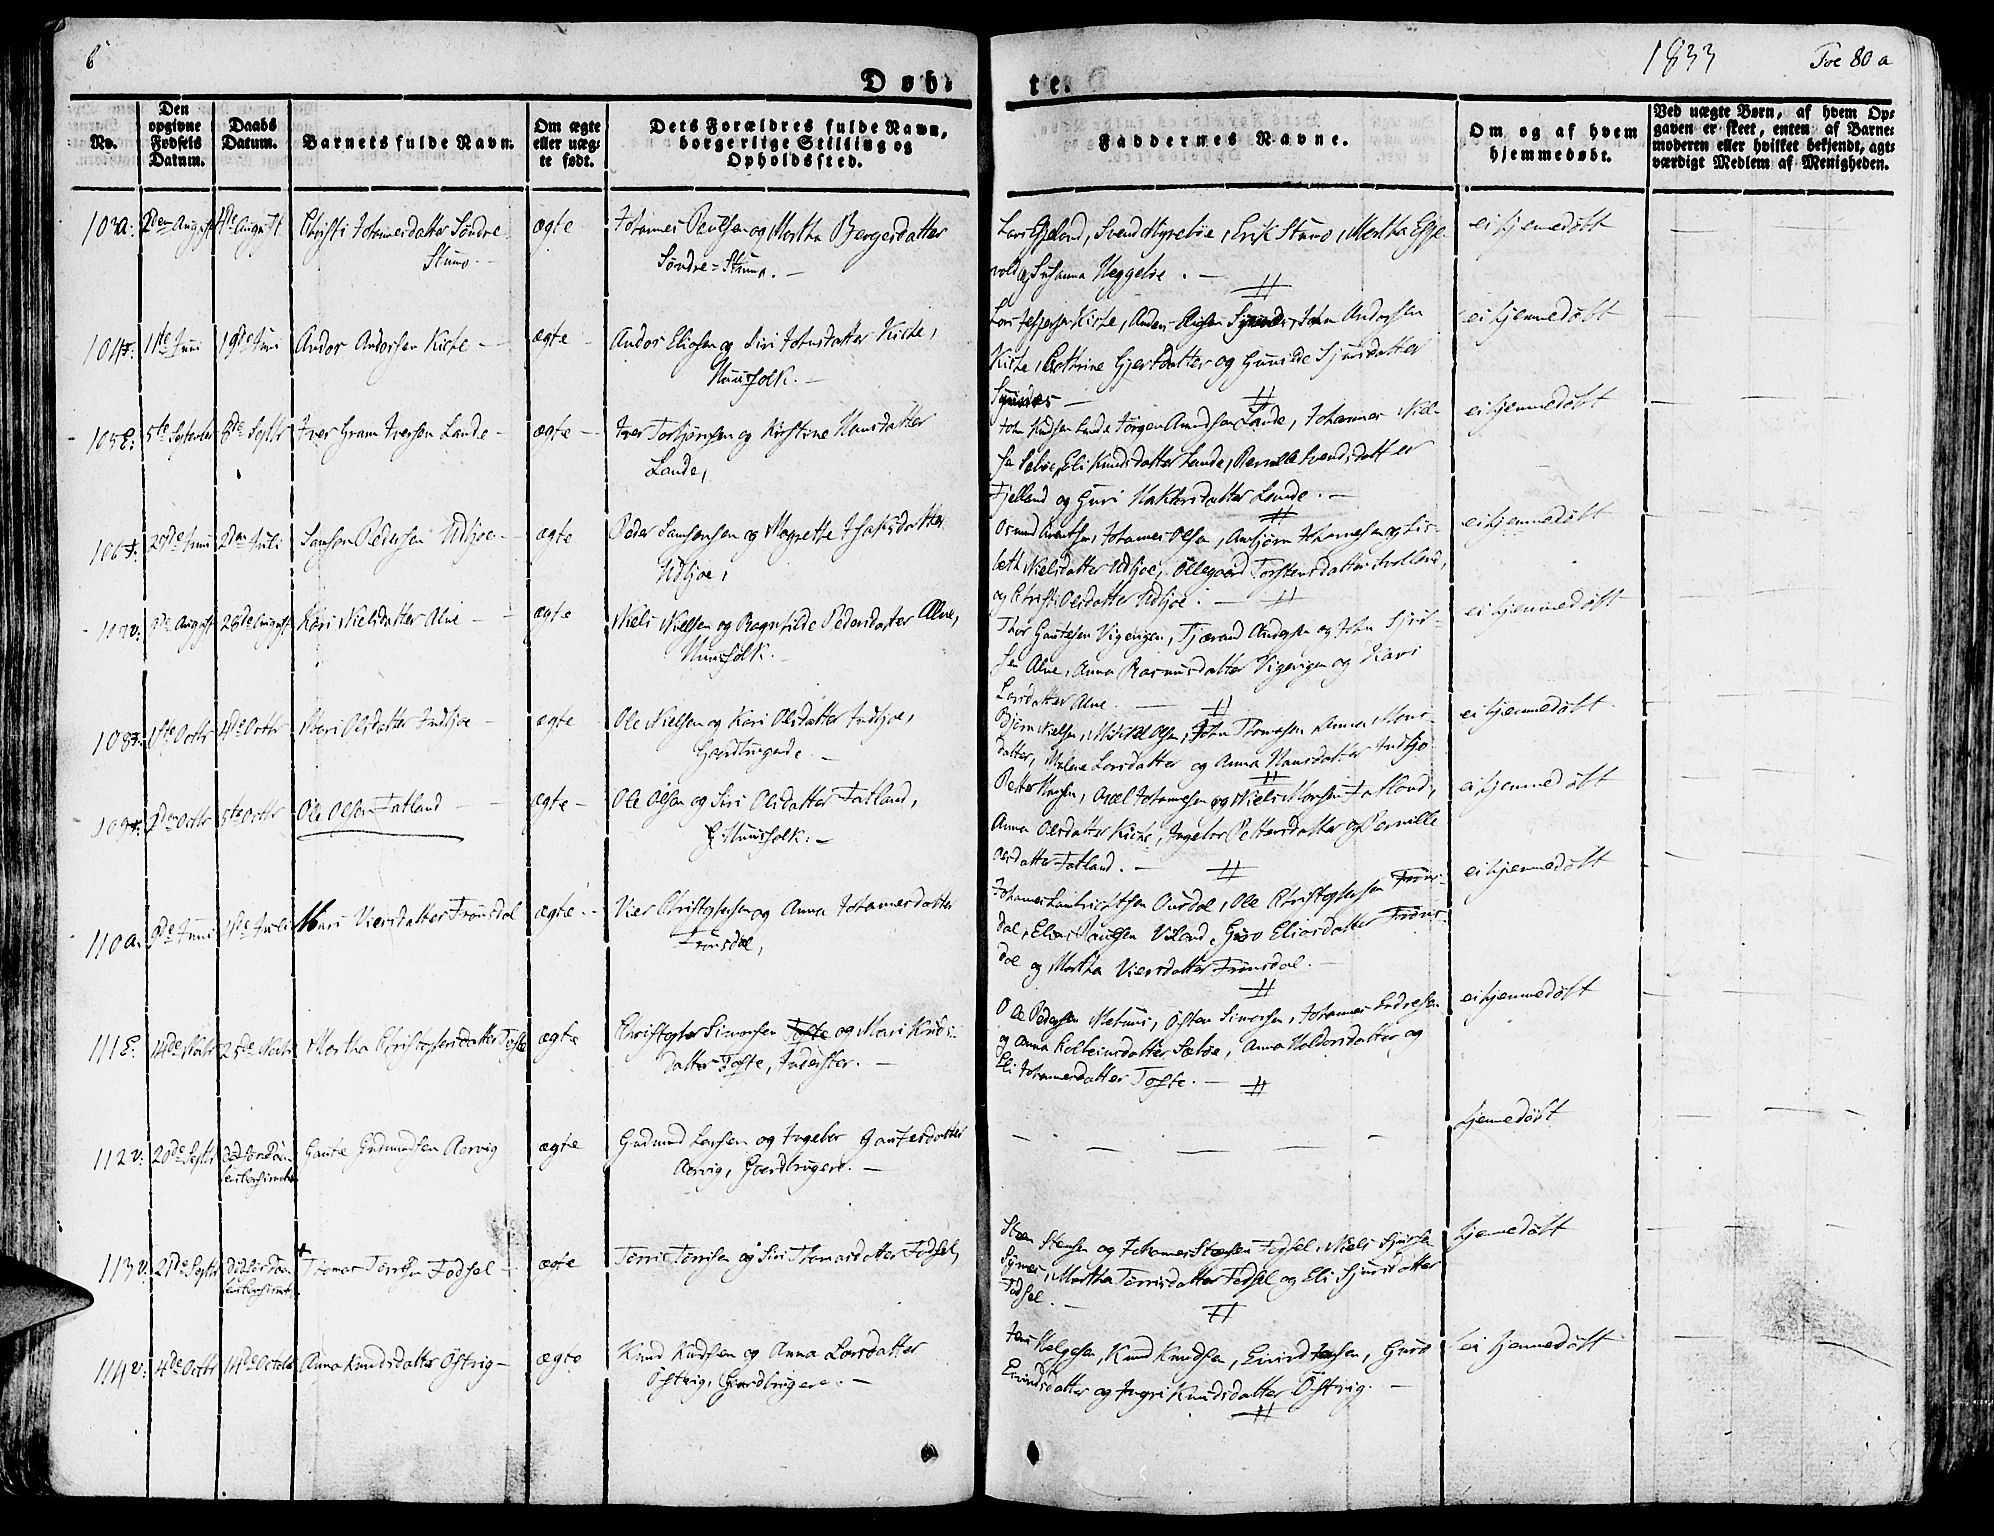 6
Døb-
te.
1833
Foe 80 a
No.
Den opgivne Fødsels Datum.
Daabs Datum.
Barnets fulde Navn.
Om ægte eller uægte født.
Dets Forældres fulde Navn, borgerlige Stilling og Opholdssted.
Faddernes Navne.
Om og af hvem hjemmedøbt.
Ved uægte Børn, af hvem Opgaven er skeet, enten af Barnemoderen eller hvilket bekjendt, agtværdigt Medlem af Menigheden.
103 a: 2den August 4de August Christi Johannesdatter Søndre ægte Johannes Poulsen og Martha Bergesdatter
Stumo.
Søndre-Stumo.
Lars Espeland, Svend Myrebøe, Erik Stumo, Martha Espe-
vold og Susanna Heggebøe.
ei hjemmedøbt
104 11te Juni 19de Juni Andor Andorsen Kirke ægte Andor Eliasen og Siri Johnsdatter Kirke,
Huusfolk.
Kirke, Cathrine Gjertsdatter og Gunilde Sjursdatter
ei hjemmedøbt
105 E: 5te September 8de Septbr Iver Gram Iversen Lande ægte Iver Torbjørnsen og Kirstine Hansdatter
Lande,
John Knudsen Lande Jørgen Amundsen Lande, Johannes Niel-
sen Sebøe, Eli Knudsdatter Lande, Pernille Svendsdatter
Fjelland og Guri Haktorsdatter Lande.
ei hjemmedøbt
106 29de Juni 2den Juli Samson Pedersen Udbjoe ægte Peder Samsonsen og Magrethe Isaksdatter
Udbjoe,
Osmund Arentsen, Johannes Olsen, Ambjørn Johannesen og Lis-
beth Nielsdatter Udbjoe, Ollegaard Torstensdatter
og Christi Olsdatter Udbjoe.
ei hjemmedøbt
107 v: August August Kari Nielsdatter Alne ægte Niels Nielsen og Ragnhilde Pedersdatter Alne,
Huusfolk.
Thor Gautesen Vigevigen, Tjærand Andersen og John Sjur-
sen Alne, Anna Rasmusdatter Vigevigen og Kari
Larsdatter Alne.
ei hjemmedøbt
108 1ste Octbr 4de Octbr Mari Olsdatter Indbjoe ægte Ole Nielsen og Kari Olsdatter Indbjoe,
Gaardbrugende
Bjørn Nielsen, Michel Olsen, John Thomasen Anna Mons-
datter, Malene Larsdatter og Anna Hansdatter Indbjo
ei hjemmedøbt
109 2den Octbr 5te Octbr Ole Olsen Fatland ægte Ole Olsen og Siri Olsdatter Fatland,
Huusfolk.
Petter Monsen, Axel Johannesen og Niels Monsen Fatland,
Anna Olsdatter Kirke, Ingebor Pettersdatter og Pernille
Olsdatter Fatland.
ei hjemmedøbt
110 a. Juni Juli Mari Viersdatter Frønsdal ægte Vier Christophersen og Anna Johannesdatter
Frønsdal,
Johannes Lambrichtsen Ousdal, Ole Christophersen Frøns-
dal, Elias Paulsen Viland, Guro Eliasdatter Frøns-
dal og Martha Viersdatter Frønsdal.
ei hjemmedøbt
111 E. 14de 25de Martha Christophersdatter Tofte ægte Christopher Simonsen Tofte og Mari Knuds-
datter Tofte, Inderster.
Ole Pedersen Mehuus, Osten Simonsen, Johannes Endresen
og Anna Kolbeinsdatter Sæbøe, Anna Haldorsdatter og
Eli Johannesdatter Tofte.
ei hjemmedøbt
112 v: 20de Septbr Gaute Gudmundsen Aarvig ægte Gudmund Larsen og Ingebor Gautesdatter
Aarvig, Gaardbrugere.
hjemmedøbt
113 v: 21de Septbr Thomas Tørrisen Fodsel ægte Tørris Tørrisen og Siri Thomasdatter Fodsel,
Sten Stensen og Johannes Stensen Fodsel, Niels Sjursen
Synes, Martha Tørrisdatter Fodsel og Eli Sjursdatter
Fodsel.
hjemmedøbt
114 v: 4de Octbr 14de October Anna Knudsdatter Østvig ægte Knud Knudsen og Anna Larsdatter
Østvig, Gaardbrugere.
Jens Helgesen, Knud Knudsen, Eivind Jensen, Guro
Eivindsdatter og Ingri Knudsdatter Østvig.
ei hjemmedøbt